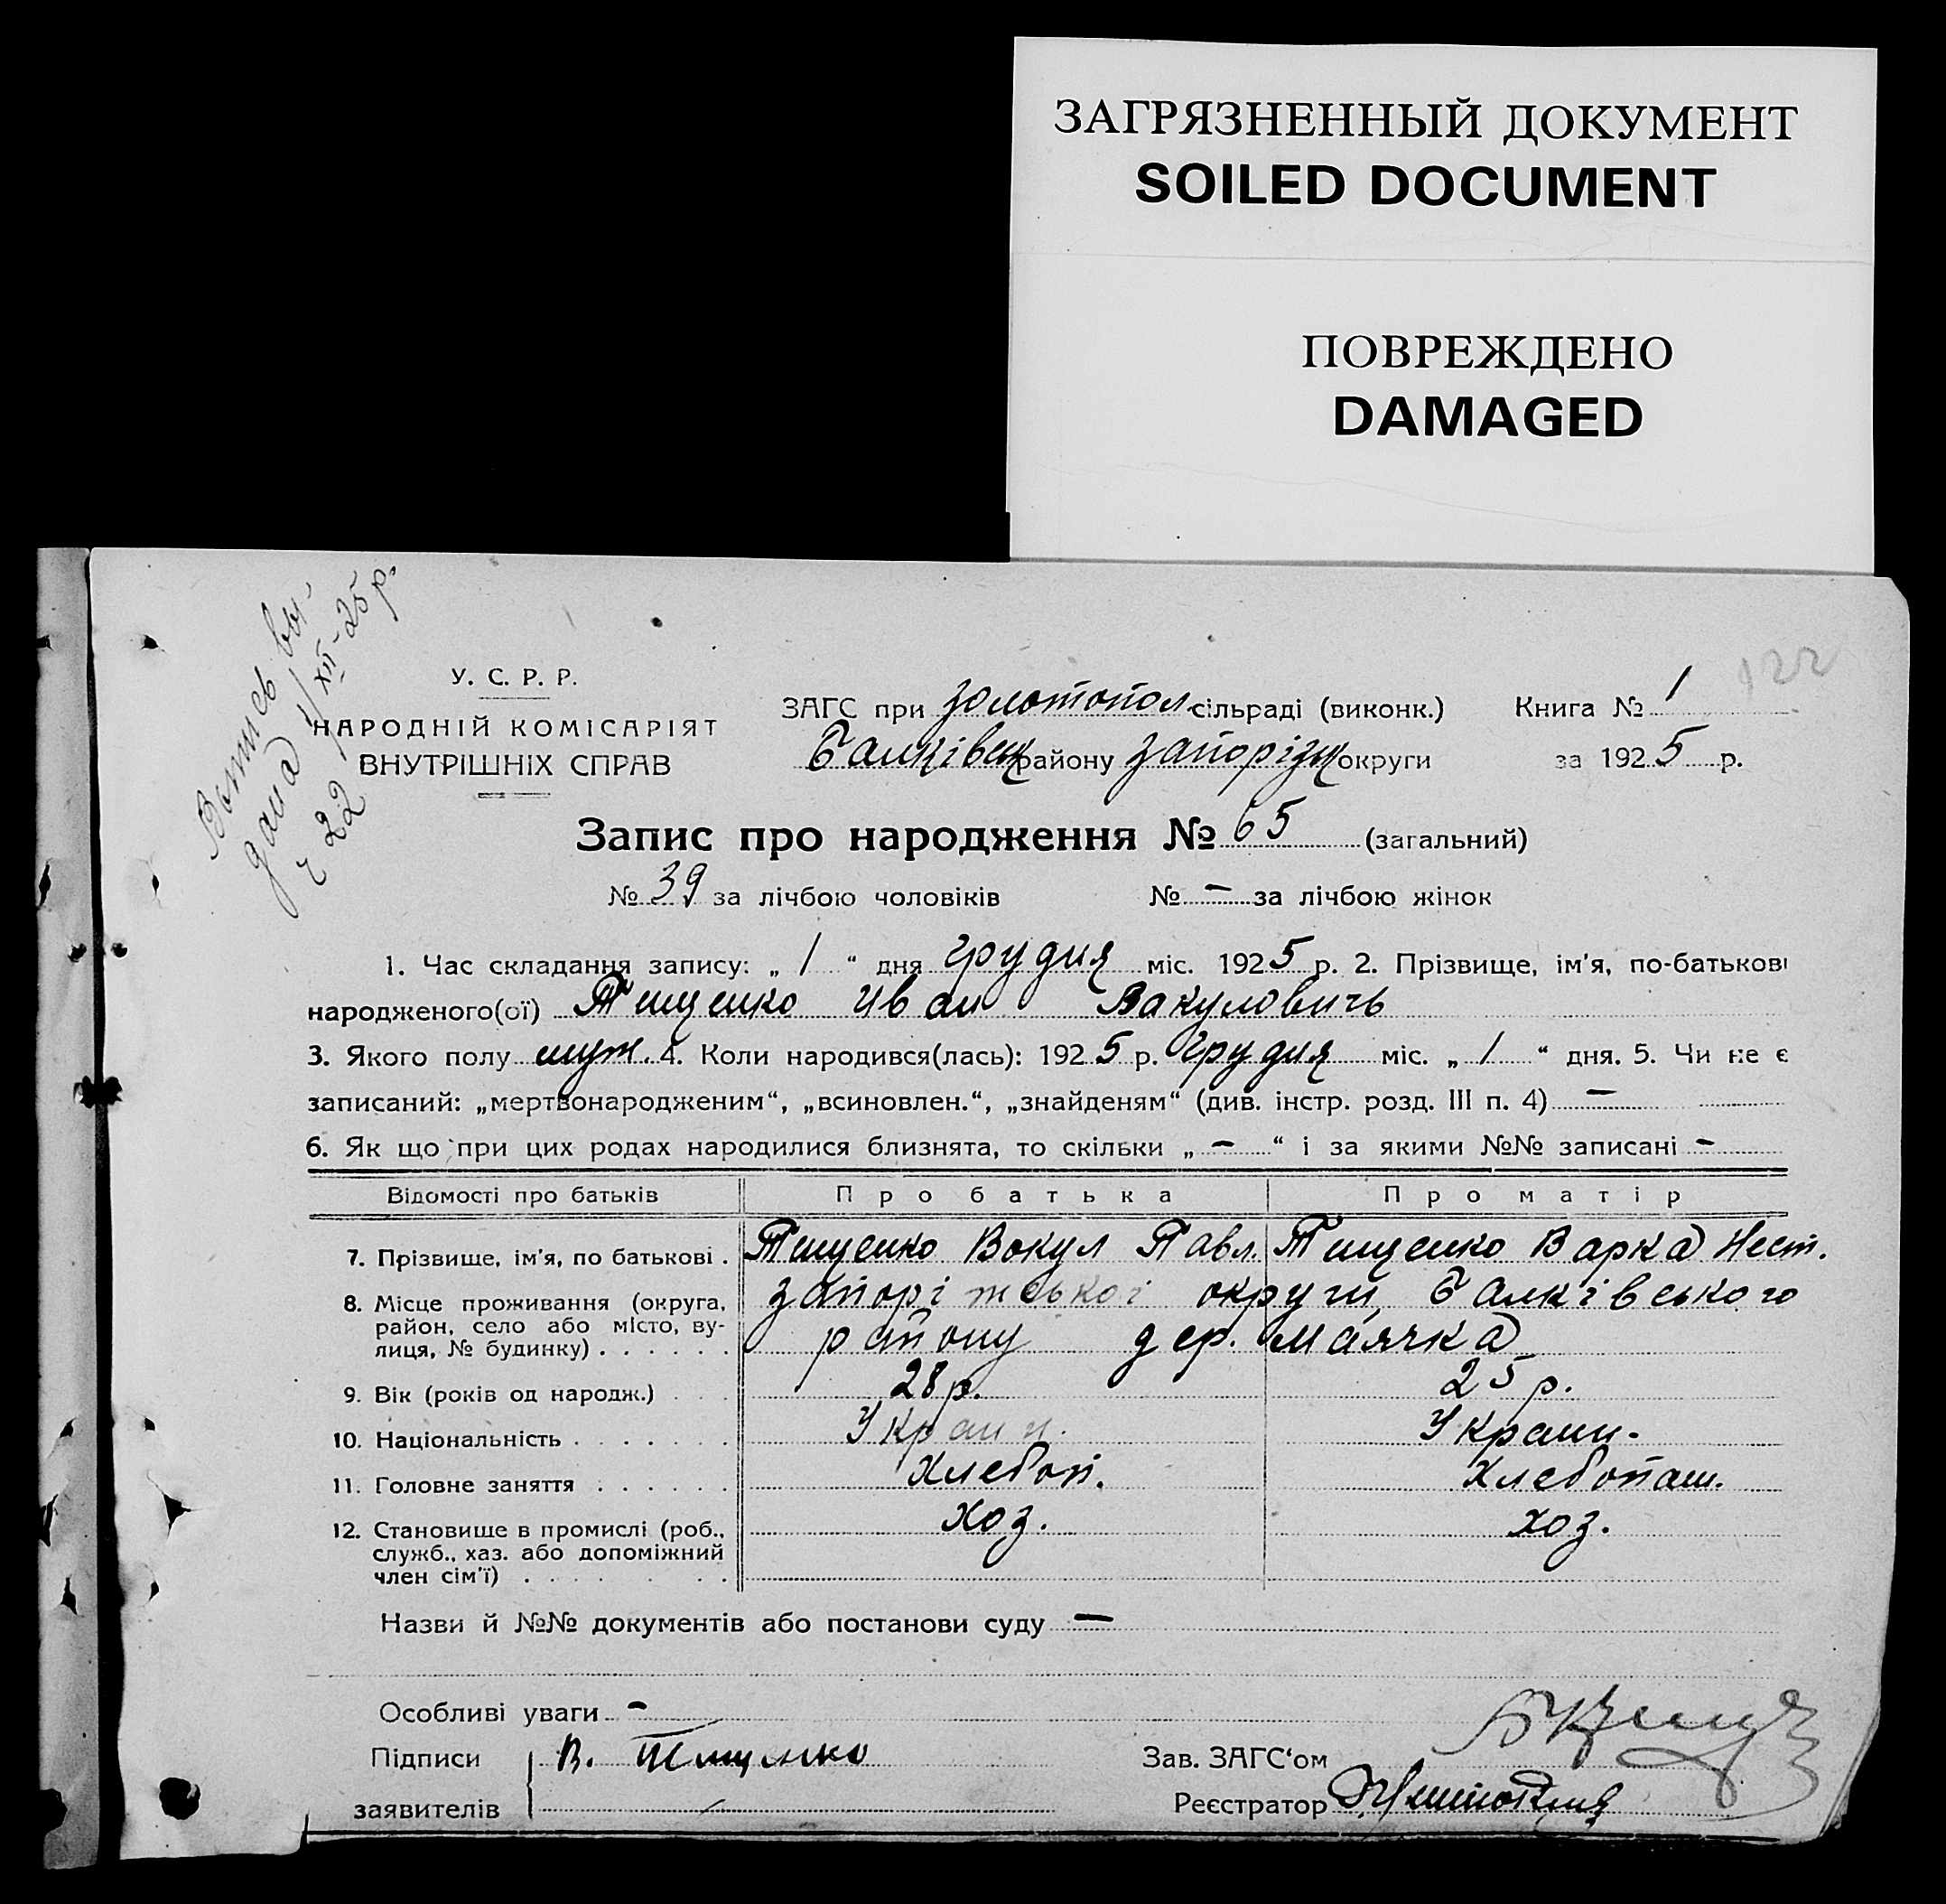 ЗАГРЯЗНЕННЫЙ ДОКУМЕНТ
SOILED DOCUMENT
ПОВРЕЖДЕНО
DAMAGED
122
Вотпсв вы-
дана 1/XII-25 р.
ч 22
У. С. Р. Р.
НАРОДНІЙ КОМІСАРІЯТ
ВНУТРІШНІХ СПРАВ
ЗАГС при Золотопол. сільраді (виконк.) Книга № 1
Балківськ району Запорізьк округи за 1925 р.
Запис про народження № 65 (загальний)
№ 39 за лічбою чоловіків № – за лічбою жінок
1. Час складання запису: „ 1 “ дня грудня міс. 1925 р. 2. Прізвище, ім'я, по-батькові
народженого(ої) Тищенко Иван Вакуловичь
3. Якого полу муж. 4. Коли народився(лась): 1925 р. Грудня міс. „ 1 “ дня. 5. Чи не є
записаний: „мертвонародженим“, „всиновлен.“, „знайденям“ (див. інстр. розд. III п. 4) –
6. Як що при цих родах народилися близнята, то скільки „ – “ і за якими №№ записані –
Відомості про батьків Про батька Про матір
7. Прізвище, ім'я, по батькові . Тищенко Вокул Павл. Тищенко Варка Нест.
8. Місце проживання (округа, запоріжської округи, Балківського
район, село або місто, ву-
лиця, № будинку) . . . . . . району дер. Маячка
9. Вік (років од народж.) . . . 28 р. 25 р.
10. Національність . . . . . . . Украин. Украин.
11. Головне заняття . . . . . . Хлебоп. Хлебопаш.
12. Становище в промислі (роб., хоз. хоз.
служб., хаз. або допоміжний
член сім'ї) . . . . . . .
Назви й №№ документів або постанови суду –
Особливі уваги –
Підписи В. Тищенко Зав. ЗАГС‘ом
заявителів Реєстратор